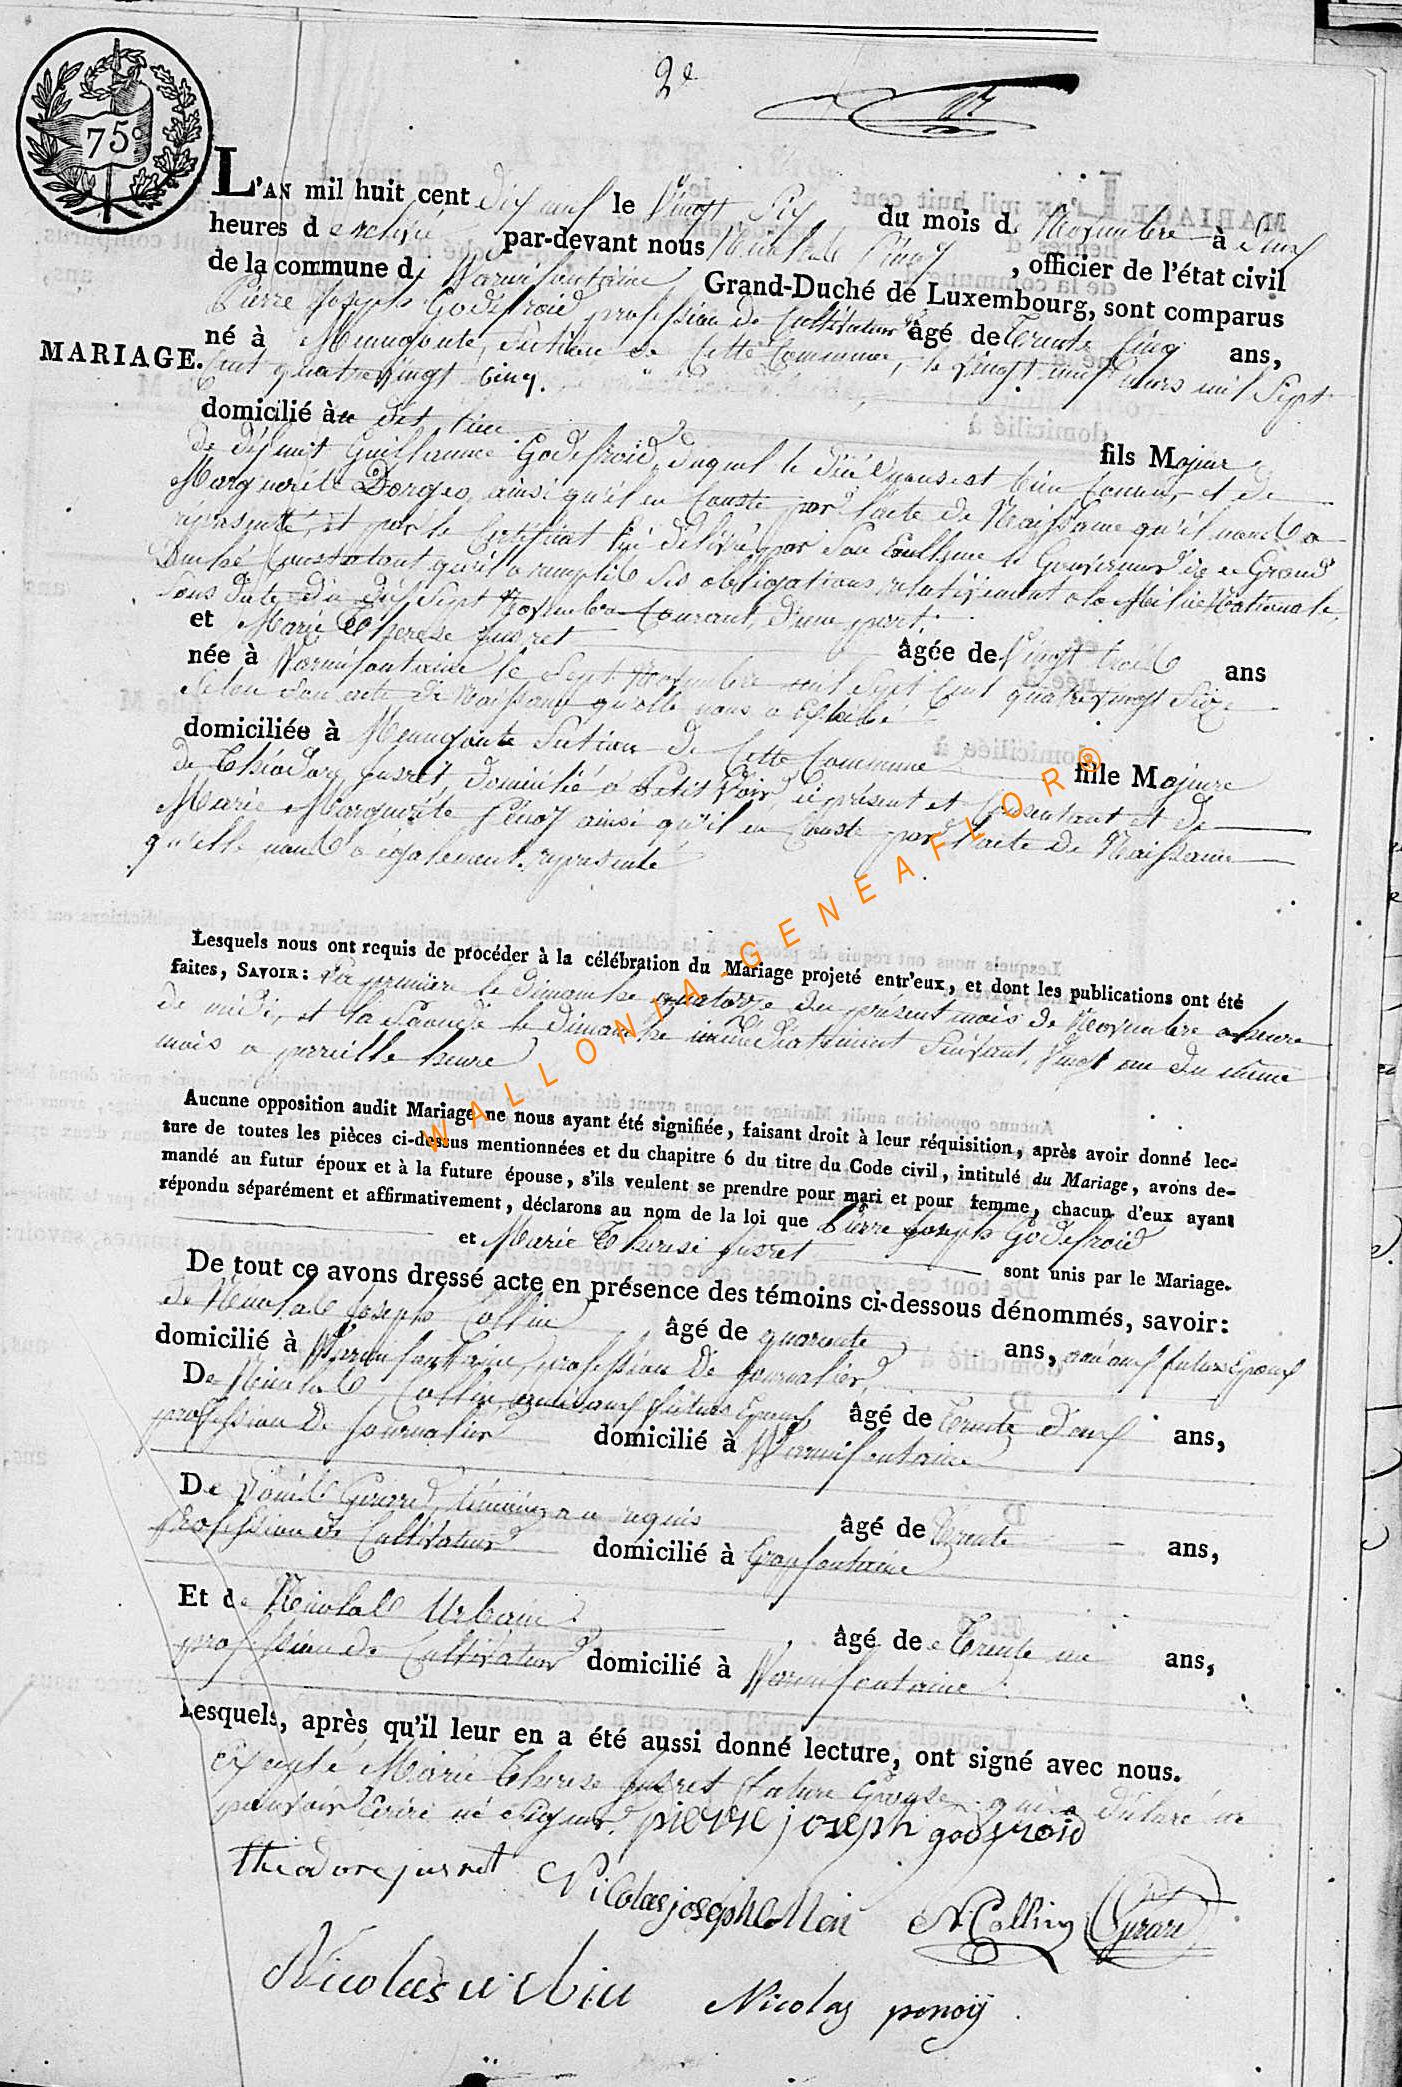 2e
75c
L'AN mil huit cent dix neuf le Vingt Six du mois de Novembre à deux
heures de relevée par-devant nous Nicolas Penoy, officier de l'état civil
de la commune de Warmifontaine Grand-Duché de Luxembourg, sont comparus
Pierre Joseph Godefroid profession de Cultivateur âgé de Trente Cinq ans,
MARIAGE.
né à Menugoute, Section de Cette Commune, le Vingt neuf mars mil Sept
Cent quatre Vingt Cinq.
domicilié au dit lieu fils Majeur
de défunt Guillaume Godefroid, duquel le décé nous est bien Connu, et de
Marguerite Dorgeo, ainsi qu'il en Conste par l'acte de Naissance qu'il nous a
représenté, et par le Certificat lui délivré par Son Excellence le Gouverneur de ce Grand
Duché Constatant qu'il a remplit Ses obligations relativement a la Milice Nationale,
Sous date du dix Sept Novembre Courant, d'une part.
et Marie Therese jusret âgée de Vingt trois ans
née à Warmifontaine le Sept Novembre mil Sept Cent quatre vingt Seize
Selon Son acte de Naissance qu'elle nous a Exhibé
domiciliée à Menugoute Section de Cette Commune fille Majeure
de Théodore jusret domicilié à Petit Voir, ci présent et Consentant et de
Marie Marguerite Penoy ainsi qu'il en Conste par l'acte de Naissance
qu'elle nous a également représenté
Lesquels nous ont requis de procéder à la célébration du Mariage projeté entr'eux, et dont les publications ont été
faites, SAVOIR: La première le dimanche quatorze du présent mois de Novembre a heure
de midi, et la Seconde le dimanche immédiatement Suivant, Vingt un du même
mois a pareille heure
Aucune opposition audit Mariage ne nous ayant été signifiée, faisant droit à leur réquisition, après avoir donné lec-
ture de toutes les pièces ci-dessus mentionnées et du chapitre 6 du titre du Code civil, intitulé du Mariage, avons de-
mandé au futur époux et à la future épouse, s'ils veulent se prendre pour mari et pour femme, chacun d'eux ayant
répondu séparément et affirmativement, déclarons au nom de la loi que Pierre Joseph Godefroid
et Marie Therese jusret sont unis par le Mariage.
De tout ce avons dressé acte en présence des témoins ci-dessous dénommés, savoir:
de Nicolas Joseph Collin âgé de quarante ans, ami aux futurs Epoux
domicilié à Warmifontaine, profession de journalier,
De Nicolas Collin, ami aux futurs Epoux, âgé de Trente deux ans,
profession de Journalier domicilié à Warmifontaine
De Girard, témoin a ce requis âgé de Trente ans,
profession de Cultivateur domicilié à Grapfontaine
Et de Nicolas Urbain âgé de Trente un ans,
profession de Cultivateur domicilié à Warmifontaine
Lesquels, après qu'il leur en a été aussi donné lecture, ont signé avec nous.
excepté Marie Therese jusret future Epouse, qui a déclaré ne
pouvoir Ecrire ne Signer. pierre joseph godfroid
theodore jusret Nicolas joseph Collin N Collin Girard
Nicolas urbin Nicolas penoÿ
WALLONIA-GENEAFLOR®